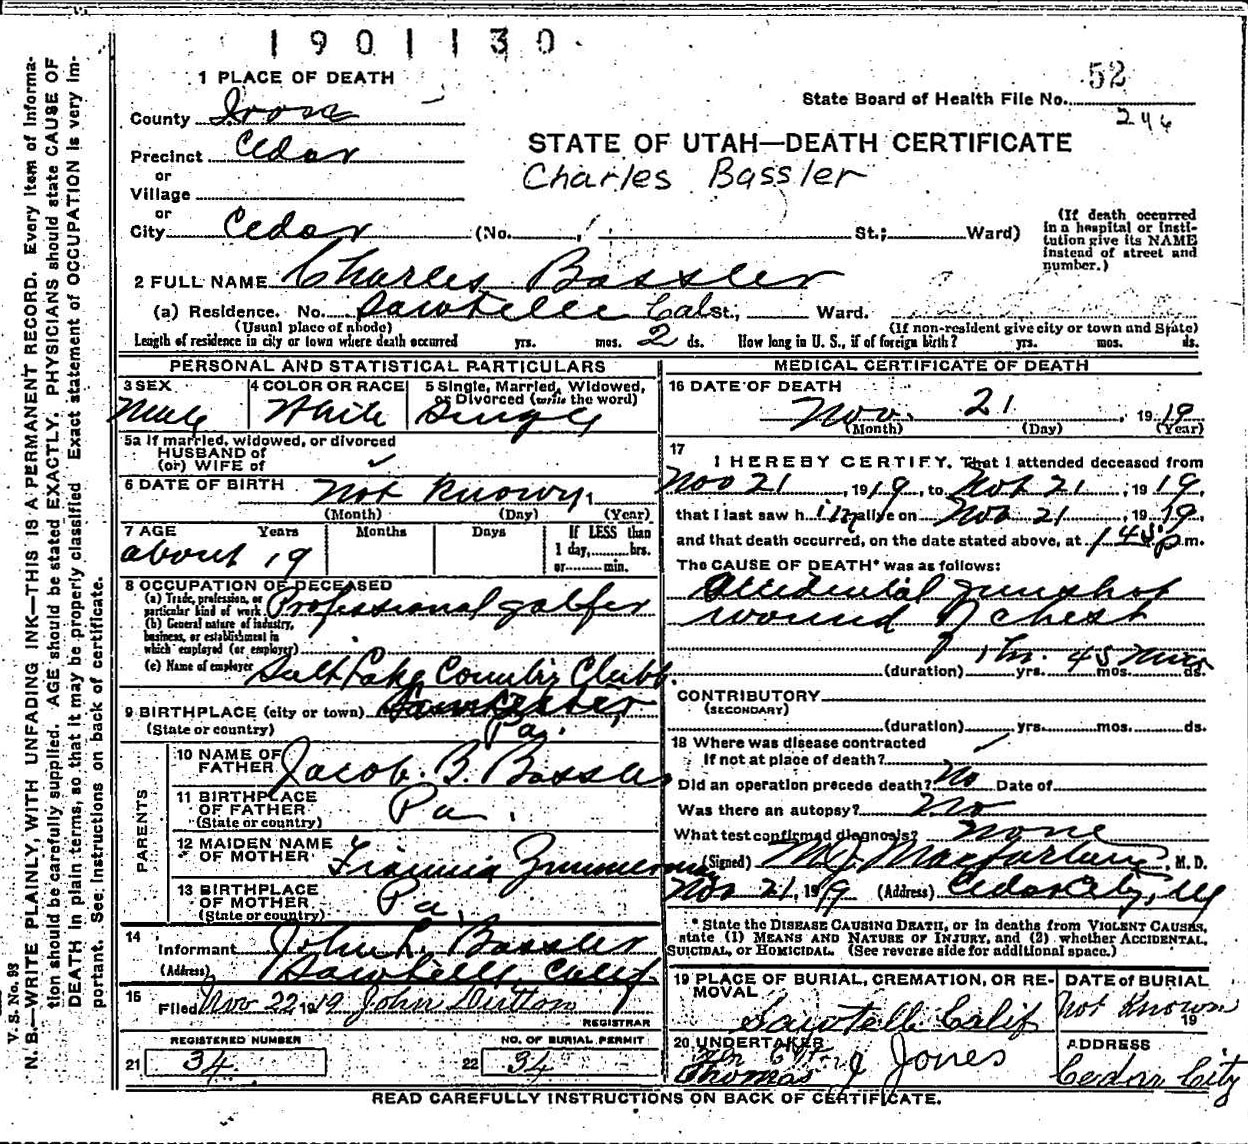 1901130
52
State Board of Health File No.
246
1 PLACE OF DEATH
County Iron
Precinct Cedar
or
Village
or
City Cedar (No. St.; Ward)
STATE OF UTAH—DEATH CERTIFICATE
Charles Bassler
(If death occurred
in a hospital or insti-
tution give its NAME
instead of street and
number.)
2 FULL NAME Charles Bassler
(a) Residence. No. Sawtelle Cal St., Ward.
(Usual place of abode) (If non-resident give city or town and State)
Length of residence in city or town where death occurred yrs. mos. 2 ds. How long in U. S., if of foreign birth? yrs. mos. ds.
PERSONAL AND STATISTICAL PARTICULARS
3 SEX 4 COLOR OR RACE 5 Single, Married, Widowed,
or Divorced (write the word)
Male White Single
5a If married, widowed, or divorced
HUSBAND of
(or) WIFE of
6 DATE OF BIRTH Not Known
(Month) (Day) (Year)
7 AGE Years Months Days If LESS than
1 day, hrs.
or min.
about 19
8 OCCUPATION OF DECEASED
(a) Trade, profession, or
particular kind of work Professional golfer
(b) General nature of industry,
business, or establishment in
which employed (or employer)
(c) Name of employer Salt Lake Country Club
9 BIRTHPLACE (city or town)
(State or country) Pa.
PARENTS
10 NAME OF
FATHER Jacob. B. Bassler
11 BIRTHPLACE
OF FATHER Pa.
(State or country)
12 MAIDEN NAME
OF MOTHER Zimmerman
13 BIRTHPLACE
OF MOTHER Pa.
(State or country)
14 Informant John L. Bassler
(Address) Sawtelle Calif
15 Filed Nov 22 1919 John Dutton
REGISTRAR
REGISTERED NUMBER NO. OF BURIAL PERMIT
21 34 22 34
MEDICAL CERTIFICATE OF DEATH
16 DATE OF DEATH
Nov. 21, 1919
(Month) (Day) (Year)
17
I HEREBY CERTIFY, That I attended deceased from
Nov 21, 1919, to Nov 21, 1919,
that I last saw him alive on Nov 21, 1919
and that death occurred, on the date stated above, at 1 45 p m.
The CAUSE OF DEATH* was as follows:
Accidental gunshot
wound of chest
1 hr. 45 Mins
(duration) yrs. mos. ds.
CONTRIBUTORY
(SECONDARY)
(duration) yrs. mos. ds.
18 Where was disease contracted
If not at place of death?
Did an operation precede death? No Date of
Was there an autopsy? No
What test confirmed diagnosis? None
(Signed) M.J. Macfarlane, M. D.
Nov 21, 1919 (Address) Cedar City, Ut
* State the DISEASE CAUSING DEATH, or in deaths from VIOLENT CAUSES,
state (1) MEANS AND NATURE OF INJURY, and (2) whether ACCIDENTAL,
SUICIDAL, or HOMICIDAL. (See reverse side for additional space.)
19 PLACE OF BURIAL, CREMATION, OR RE-
MOVAL
Sawtelle Calif
DATE OF BURIAL
Not Known
19
20 UNDERTAKER
Thomas J Jones
ADDRESS
Cedar City
READ CAREFULLY INSTRUCTIONS ON BACK OF CERTIFICATE.
V. S. No. 93
N. B.—WRITE PLAINLY, WITH UNFADING INK—THIS IS A PERMANENT RECORD. Every Item of Informa-
tion should be carefully supplied. AGE should be stated EXACTLY. PHYSICIANS should state CAUSE OF
DEATH in plain terms, so that it may be properly classified. Exact statement of OCCUPATION is very im-
portant. See Instructions on back of certificate.